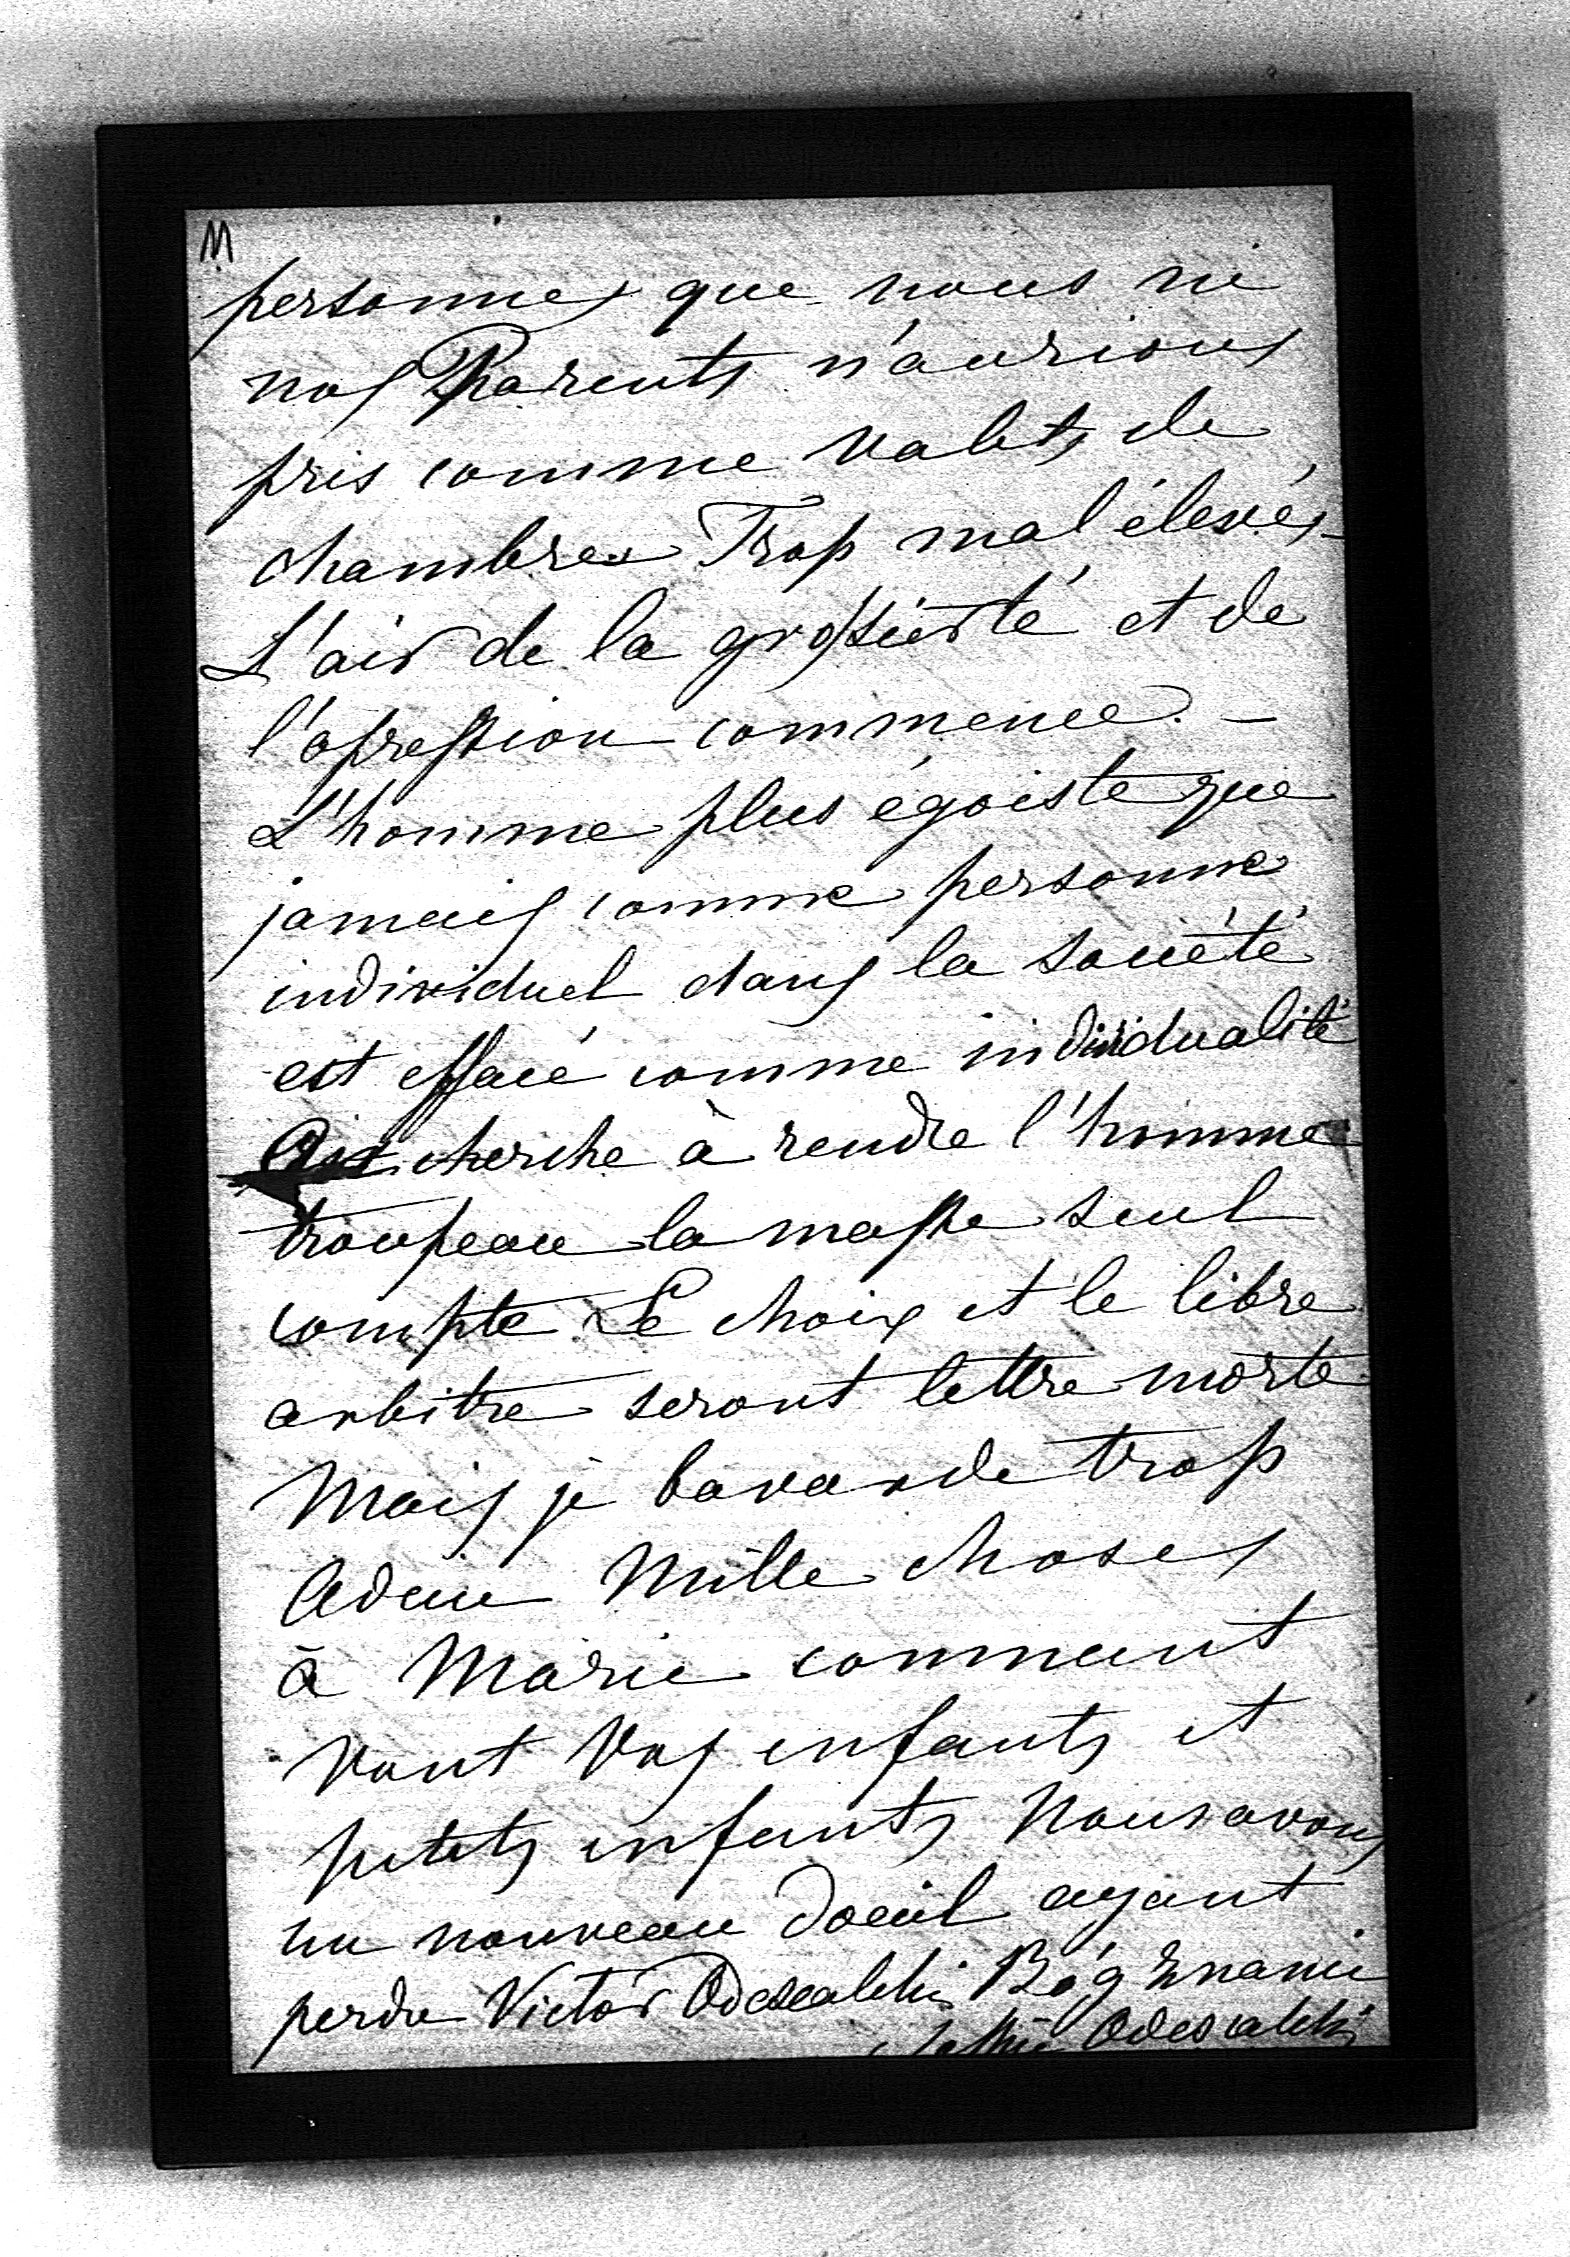 M
personnes que nous ni
nos Parents n'aurions
pris comme valets de
chambres Trop mal élevés -
L'air de la grossierté et de
l'opression commence. -
L'homme plus égoiste que
jamais comme personne
individuel dans la société
est effacé comme individualité
On cherche à rendre l'homme
troupeau la masse seul
compte Le choix et le libre
arbitre seront lettre morte
Mais je bavarde trop
Adieu Mille choses
à Marie comment
vont Vos enfants et
petets enfants Nous avons
un nouveau doeuil ayant
perdu Victor Odescalchi Bóg z nami
Odescalchi